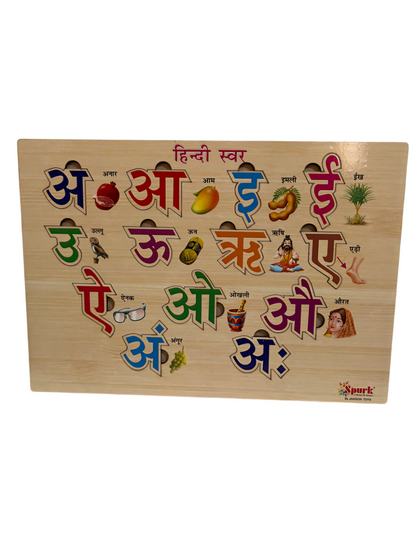 हिन्दी स्वर
अ अनार आ आम इ इमली ई ईख
उ उल्लू ऊ ऊन ऋ ऋषि ए एड़ी
ऐ ऐनक ओ ओखली औ औरत
अं अंगूर अः
Spark